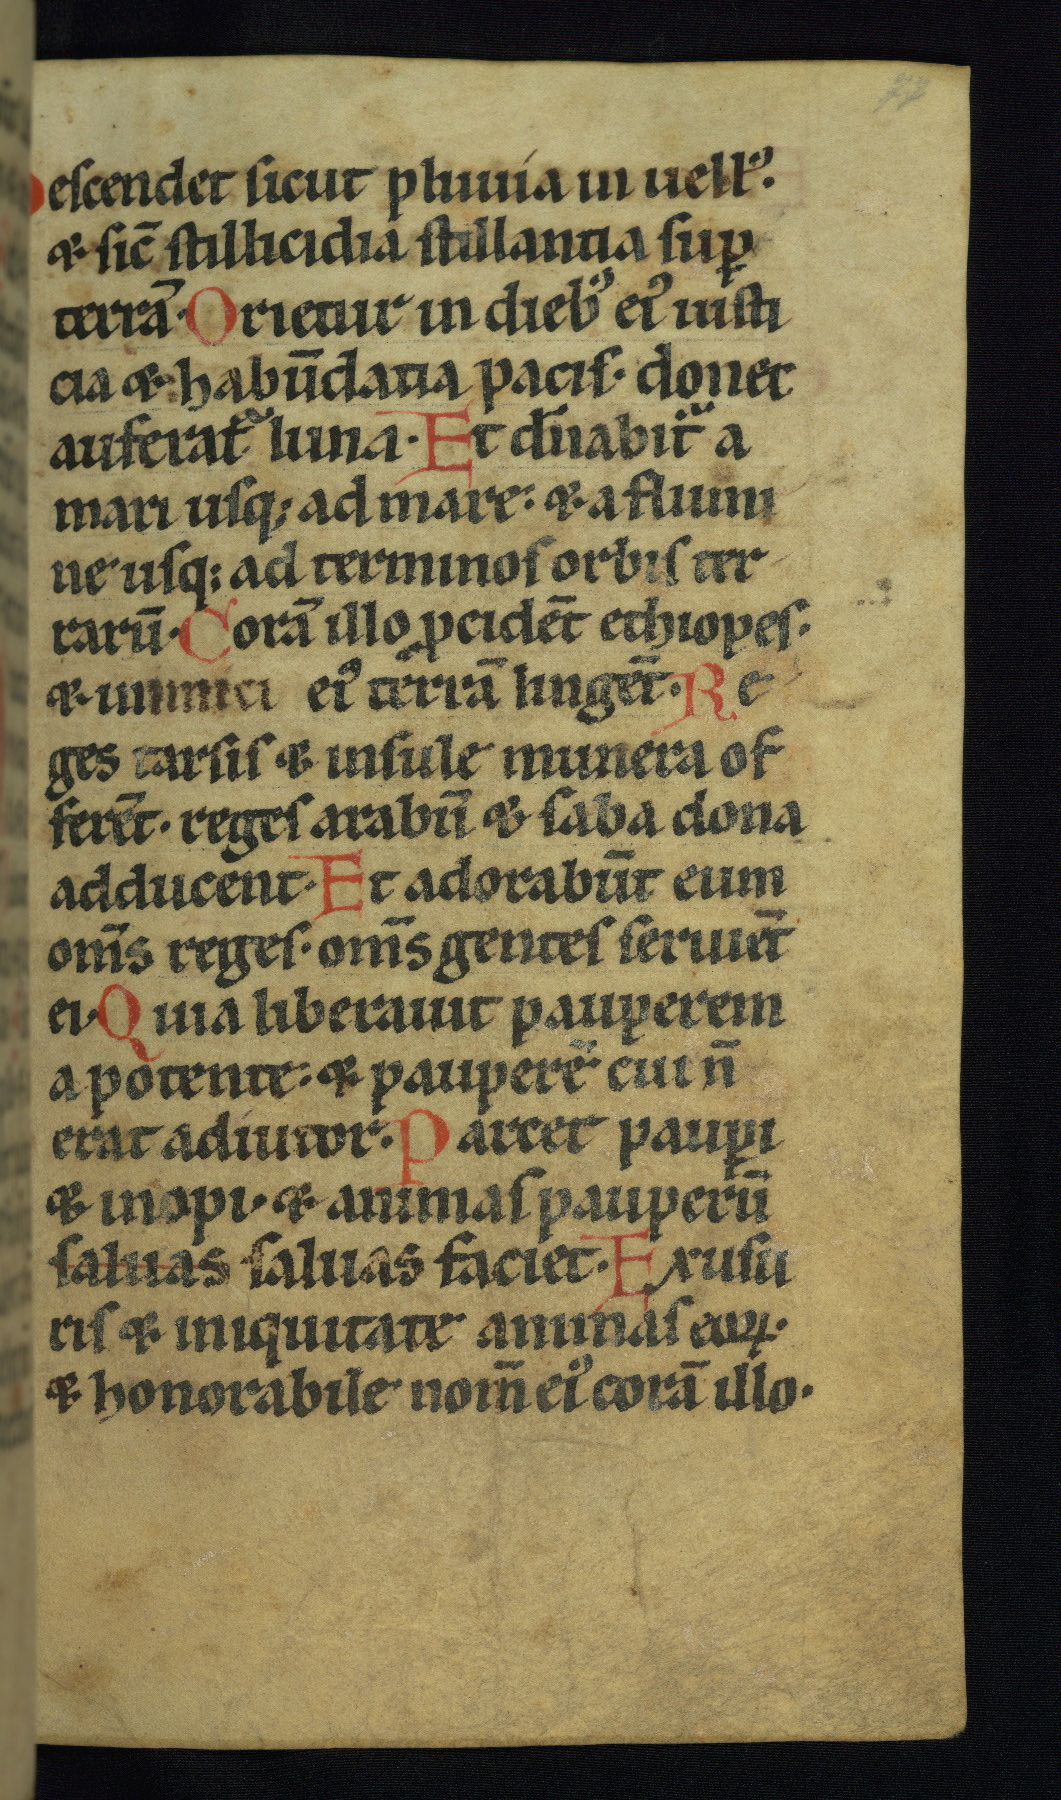 Descendet sicut pluuia in uell᷒.
⁊ sic̄ stillicidia stillantia suꝑ
terrā. Orietur in dieb᷒ ei᷒ iusti
cia ⁊ habūdatia pacis. donec
auferat᷑ luna. Et dn̄abit᷑ a
mari usq; ad mare: ⁊ a flumi
ne usq; ad terminos orbis ter
rarū. Corā illo ꝓcidēt ethiopes.
⁊ inimici ei᷒ terrā lingēt. Re
ges tarsis ⁊ insule munera of
ferēt. reges arabū ⁊ saba dona
adducent. Et adorabūt eum
om̄s reges. om̄s gentes seruiēt
ei. Quia liberauit pauperem
a potente: ⁊ pauperē cui n̄
erat adiutor. Parcet pauꝑi
⁊ inopi. ⁊ animas pauperū
saluas saluas faciet. Ex usu
ris ⁊ iniquitate animas eoꝝ.
⁊ honorabile nom̄ ei᷒ corā illo.